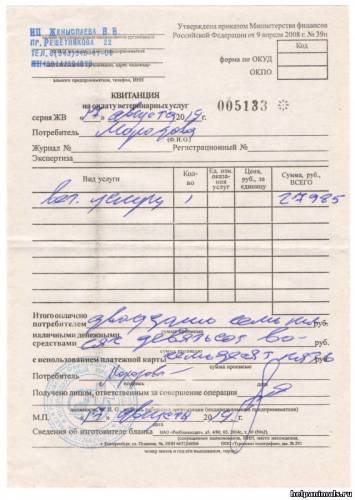 Утверждена приказом Министерства финансов
Российской Федерации от 9 апреля 2008 г. № 39н
ИП Женыспаева В.В.
пр. Решетникова 22
Код
форма по ОКУД
ОКПО
КВИТАНЦИЯ
на оплату ветеринарных услуг
005133
серия ЖВ «17» августа 2019г.
Потребитель Морозова
(Ф.И.О.)
Журнал № Регистрационный №
Экспертиза
Вид услуги
Кол-во
Ед. изм. оказания услуг
Цена, руб., за единицу
Сумма, руб., ВСЕГО
вет. услуги 1 27985
Итого оплачено
потребителем двадцать семь ты- руб.
сумма прописью
наличными денежными
средствами сяч девятьсот во- руб.
сумма прописью
с использованием платежной карты семьдесят пять руб.
сумма прописью
Потребитель Морозова
подпись дата
Получено лицом, ответственным за совершение операции
М.П. «17» августа 2019г.
Сведения об изготовителе бланка
helpanimals.ru